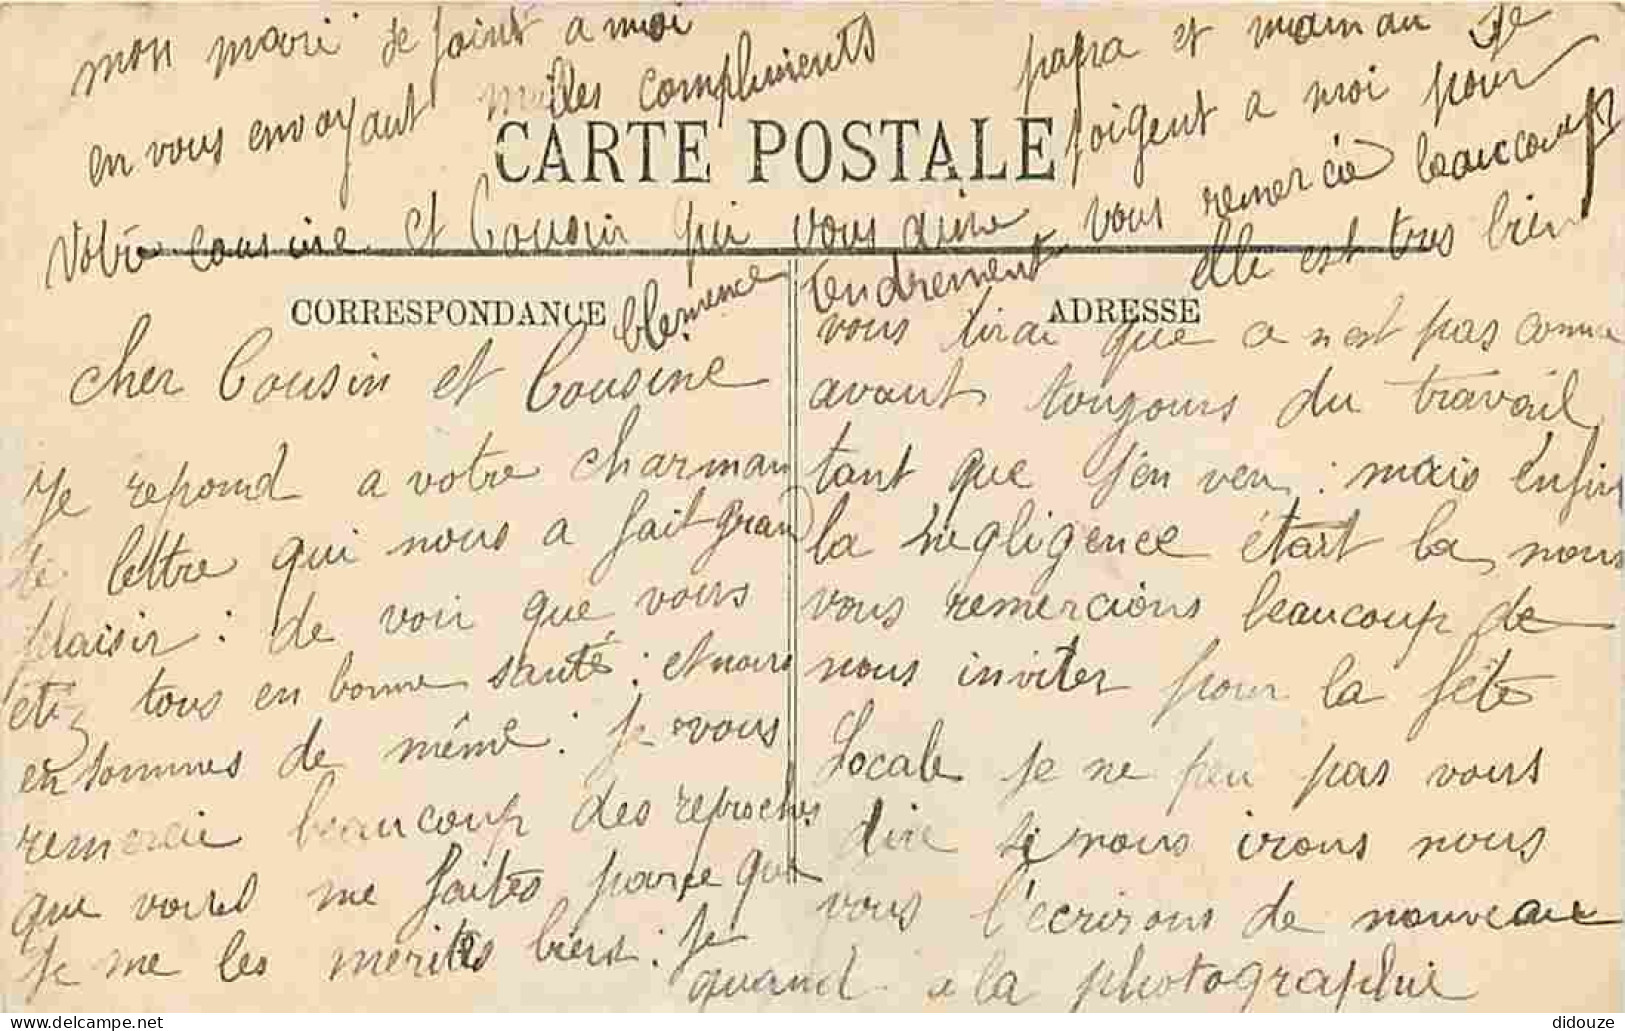 cher Cousin et Cousine
Je repond a votre charman
te lettre qui nous a fait grand
plaisir : de voir que vous
étéz tous en bonne santé : et nous
en sommes de même : Je vous
remercie beaucoup des reproches
que vous me faites parce que
Je me les merites bien : Je
vous dirai que ce n'est pas comme
avant toujours du travail
tant que j'en veu : mais enfin
la négligence était la nous
vous remercions beaucoup de
nous inviter pour la fête
Locale je ne peu pas vous
dire si nous irons nous
vous l'écrirons de nouveau
quand a la photographie
elle est tres bien
papa et maman se
joigent a moi pour
vous remercié beaucoup
mon mari se joint a moi
en vous envoyant milles compliments
Votre cousine et Cousin qui vous aime
tendrement
Clemence
CARTE POSTALE
CORRESPONDANCE
ADRESSE
delcampe.net
didouze